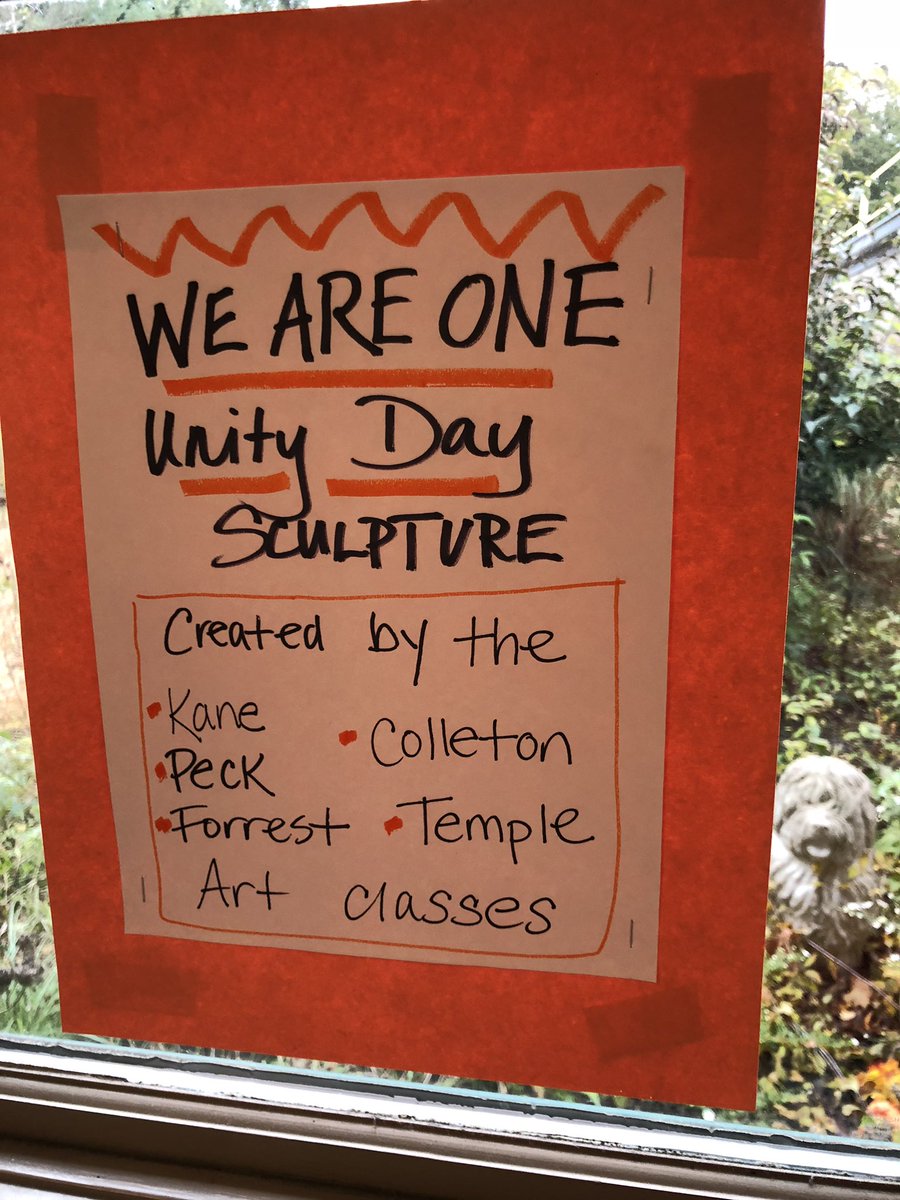 WE ARE ONE
Unity Day
SCULPTURE
Created by the
• Kane
• Colleton
• Peck
• Forrest • Temple
Art classes